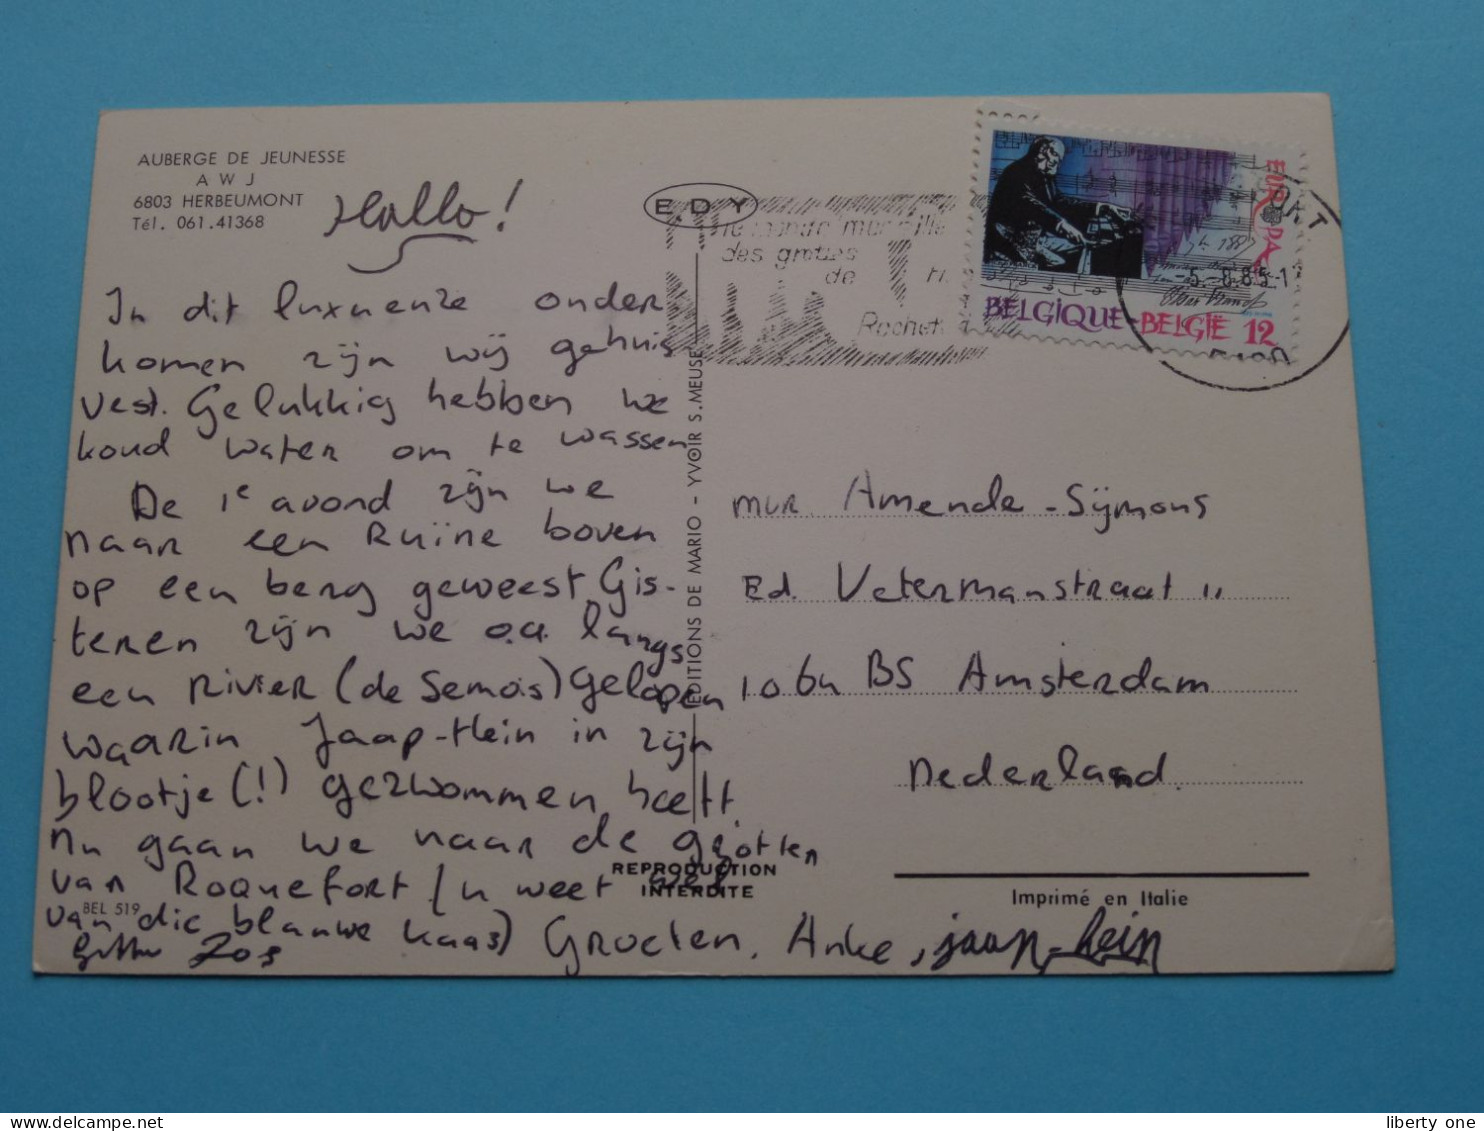 AUBERGE DE JEUNESSE
A W J
6803 HERBEUMONT
Tél. 061.41368
Hallo!
In dit luxueuze onder
komen zijn wij gehuis
vest. Gelukkig hebben we
koud water om te wassen
De 1e avond zijn we
naar een Ruïne boven
op een berg geweest Gis-
teren zijn we o.a. langs
een rivier (de Semois) gelopen
waarin Jaap-Hein in zijn
blootje (!) gezwommen heeft.
Nu gaan we naar de grotten
van Roquefort (u weet wel
van die blauwe kaas) Groeten, Anke, jaap-hein
BEL 519
EDY
EDITIONS DE MARIO - YVOIR S. MEUSE
REPRODUCTION
INTERDITE
des grottes
de
Rochef
EUROPA
BELGIQUE-BELGIË 12
-5.-8.85-1
mvr Amende-Sÿmons
Ed. Vetermanstraat 11
1064 BS Amsterdam
Nederland
Imprimé en Italie
liberty one